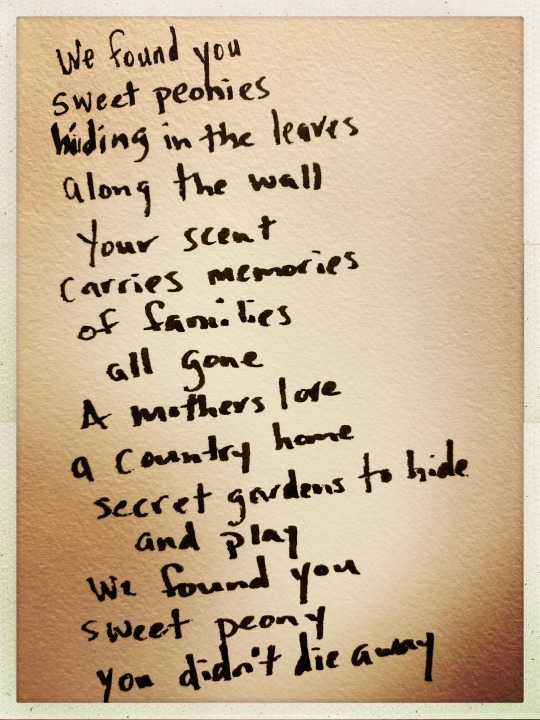 We found you
sweet peonies
hiding in the leaves
along the wall
Your scent
Carries memories
of families
all gone
A mothers love
a Country home
secret gardens to hide
and play
We found you
sweet peony
you didn't die away